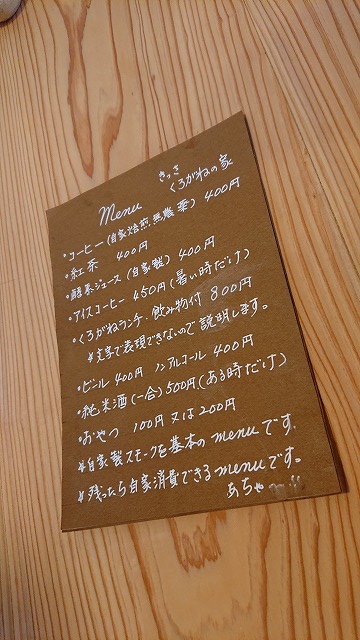 きっさ
くろがねの家
Menu
・コーヒー(自家焙煎、無農薬) 400円
・紅茶 400円
・酵素ジュース(自家製) 400円
・アイスコーヒー 450円(暑い時だけ)
・くろがねランチ・飲み物付 800円
※文字で表現できないので説明します。
・ビール 400円 ノンアルコール 400円
・純米酒(一合)500円(ある時だけ)
・おやつ 100円又は200円
※自家製スモークを基本のmenuです。
※残ったら自家消費できるmenuです。
あちゃ